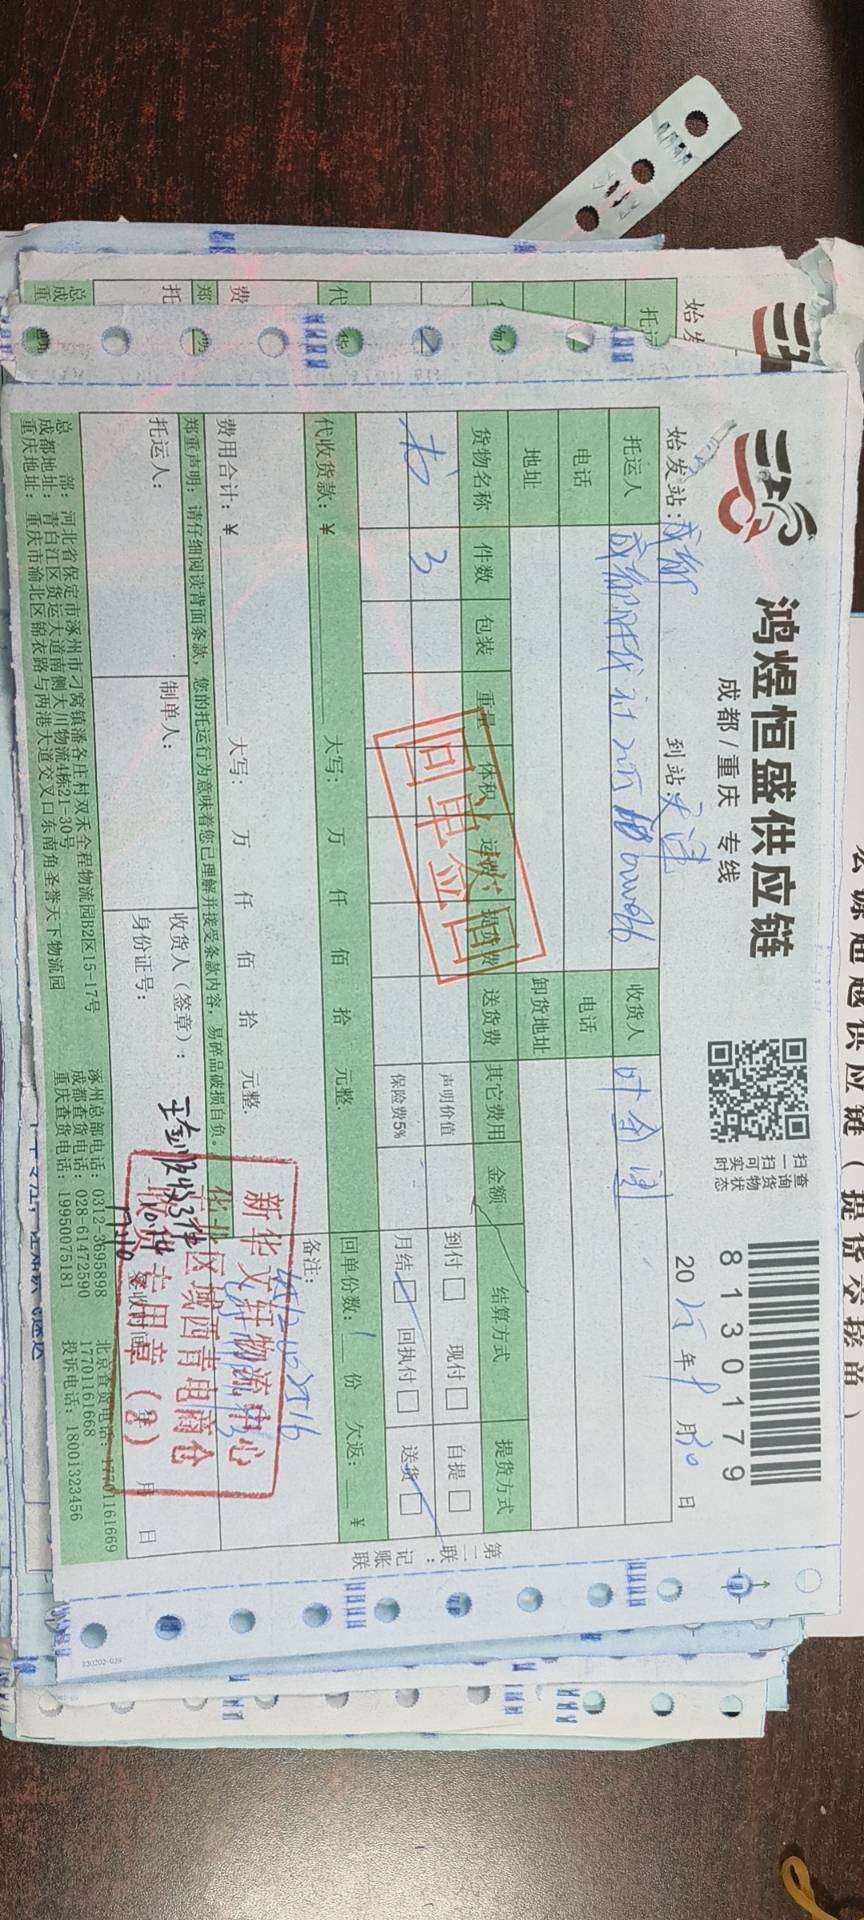 鸿煜恒盛供应链
成都/重庆 专线
扫一扫可实时
查询货物状态
8130179
始发站：成都 到站：天津 2025年9月30日
托运人 收货人 叶全国
电话 电话
地址 卸货地址
货物名称 件数 包装 重量 体积 运费 提货费 送货费 其它费用 金额 结算方式 提货方式
书 3 声明价值 到付 现付 自提
保险费5% 月结 回执付 送货
代收货款：¥ 大写： 万 仟 佰 拾 元整 回单份数：1 份 欠返： ¥
费用合计：¥ 大写： 万 仟 佰 拾 元整. 备注：
郑重声明：请仔细阅读背面条款，您的托运行为意味着您已理解并接受条款内容，易碎品破损自负。
托运人： 制单人： 收货人（签章）：
身份证号： 签收时间： 年 月 日
回单签回
新华文轩物流中心
华北区域西青电商仓
收货专用章（2）
总 部：河北省保定市涿州市刁窝镇潘各庄村双禾全程物流园B2区15-17号
成都地址：青白江区货运大道南侧大川物流4栋21-30号
重庆地址：重庆市渝北区锦衣路与两港大道交叉口东南角圣誉天下物流园
涿州总部电话：0312-3695898 北京查货电话：17701161669
成都查货电话：028-61472590 17701161668
重庆查货电话：19950075181 投诉电话：18001323456
第二联：记账联